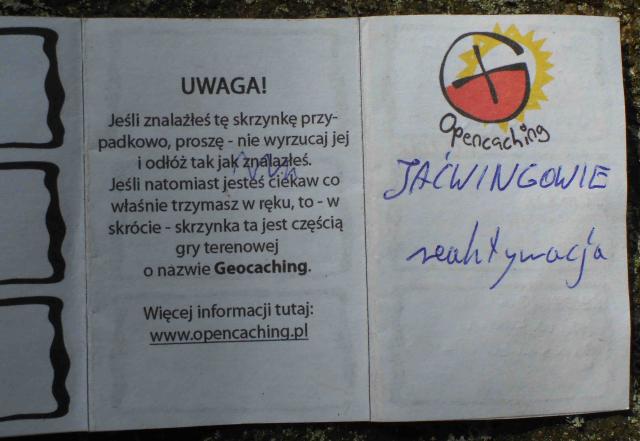 UWAGA!
Jeśli znalazłeś tę skrzynkę przy-
padkowo, proszę - nie wyrzucaj jej
i odłóż tak jak znalazłeś.
Jeśli natomiast jesteś ciekaw co
właśnie trzymasz w ręku, to - w
skrócie - skrzynka ta jest częścią
gry terenowej
o nazwie Geocaching.
Więcej informacji tutaj:
www.opencaching.pl
Opencaching
JAĆWINGOWIE
reaktywacja